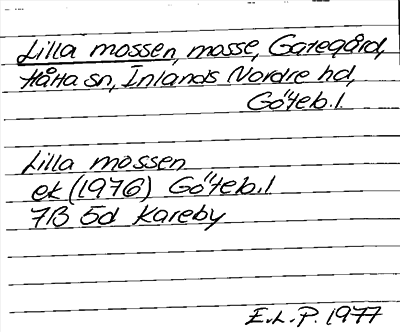 Lilla mossen, mosse, Gategård,
Hålta sn, Inlands Nordre hd,
Göteb. l.
Lilla mossen
ek (1976) Göteb. l
7B 5d Kareby
E.L.P. 1977